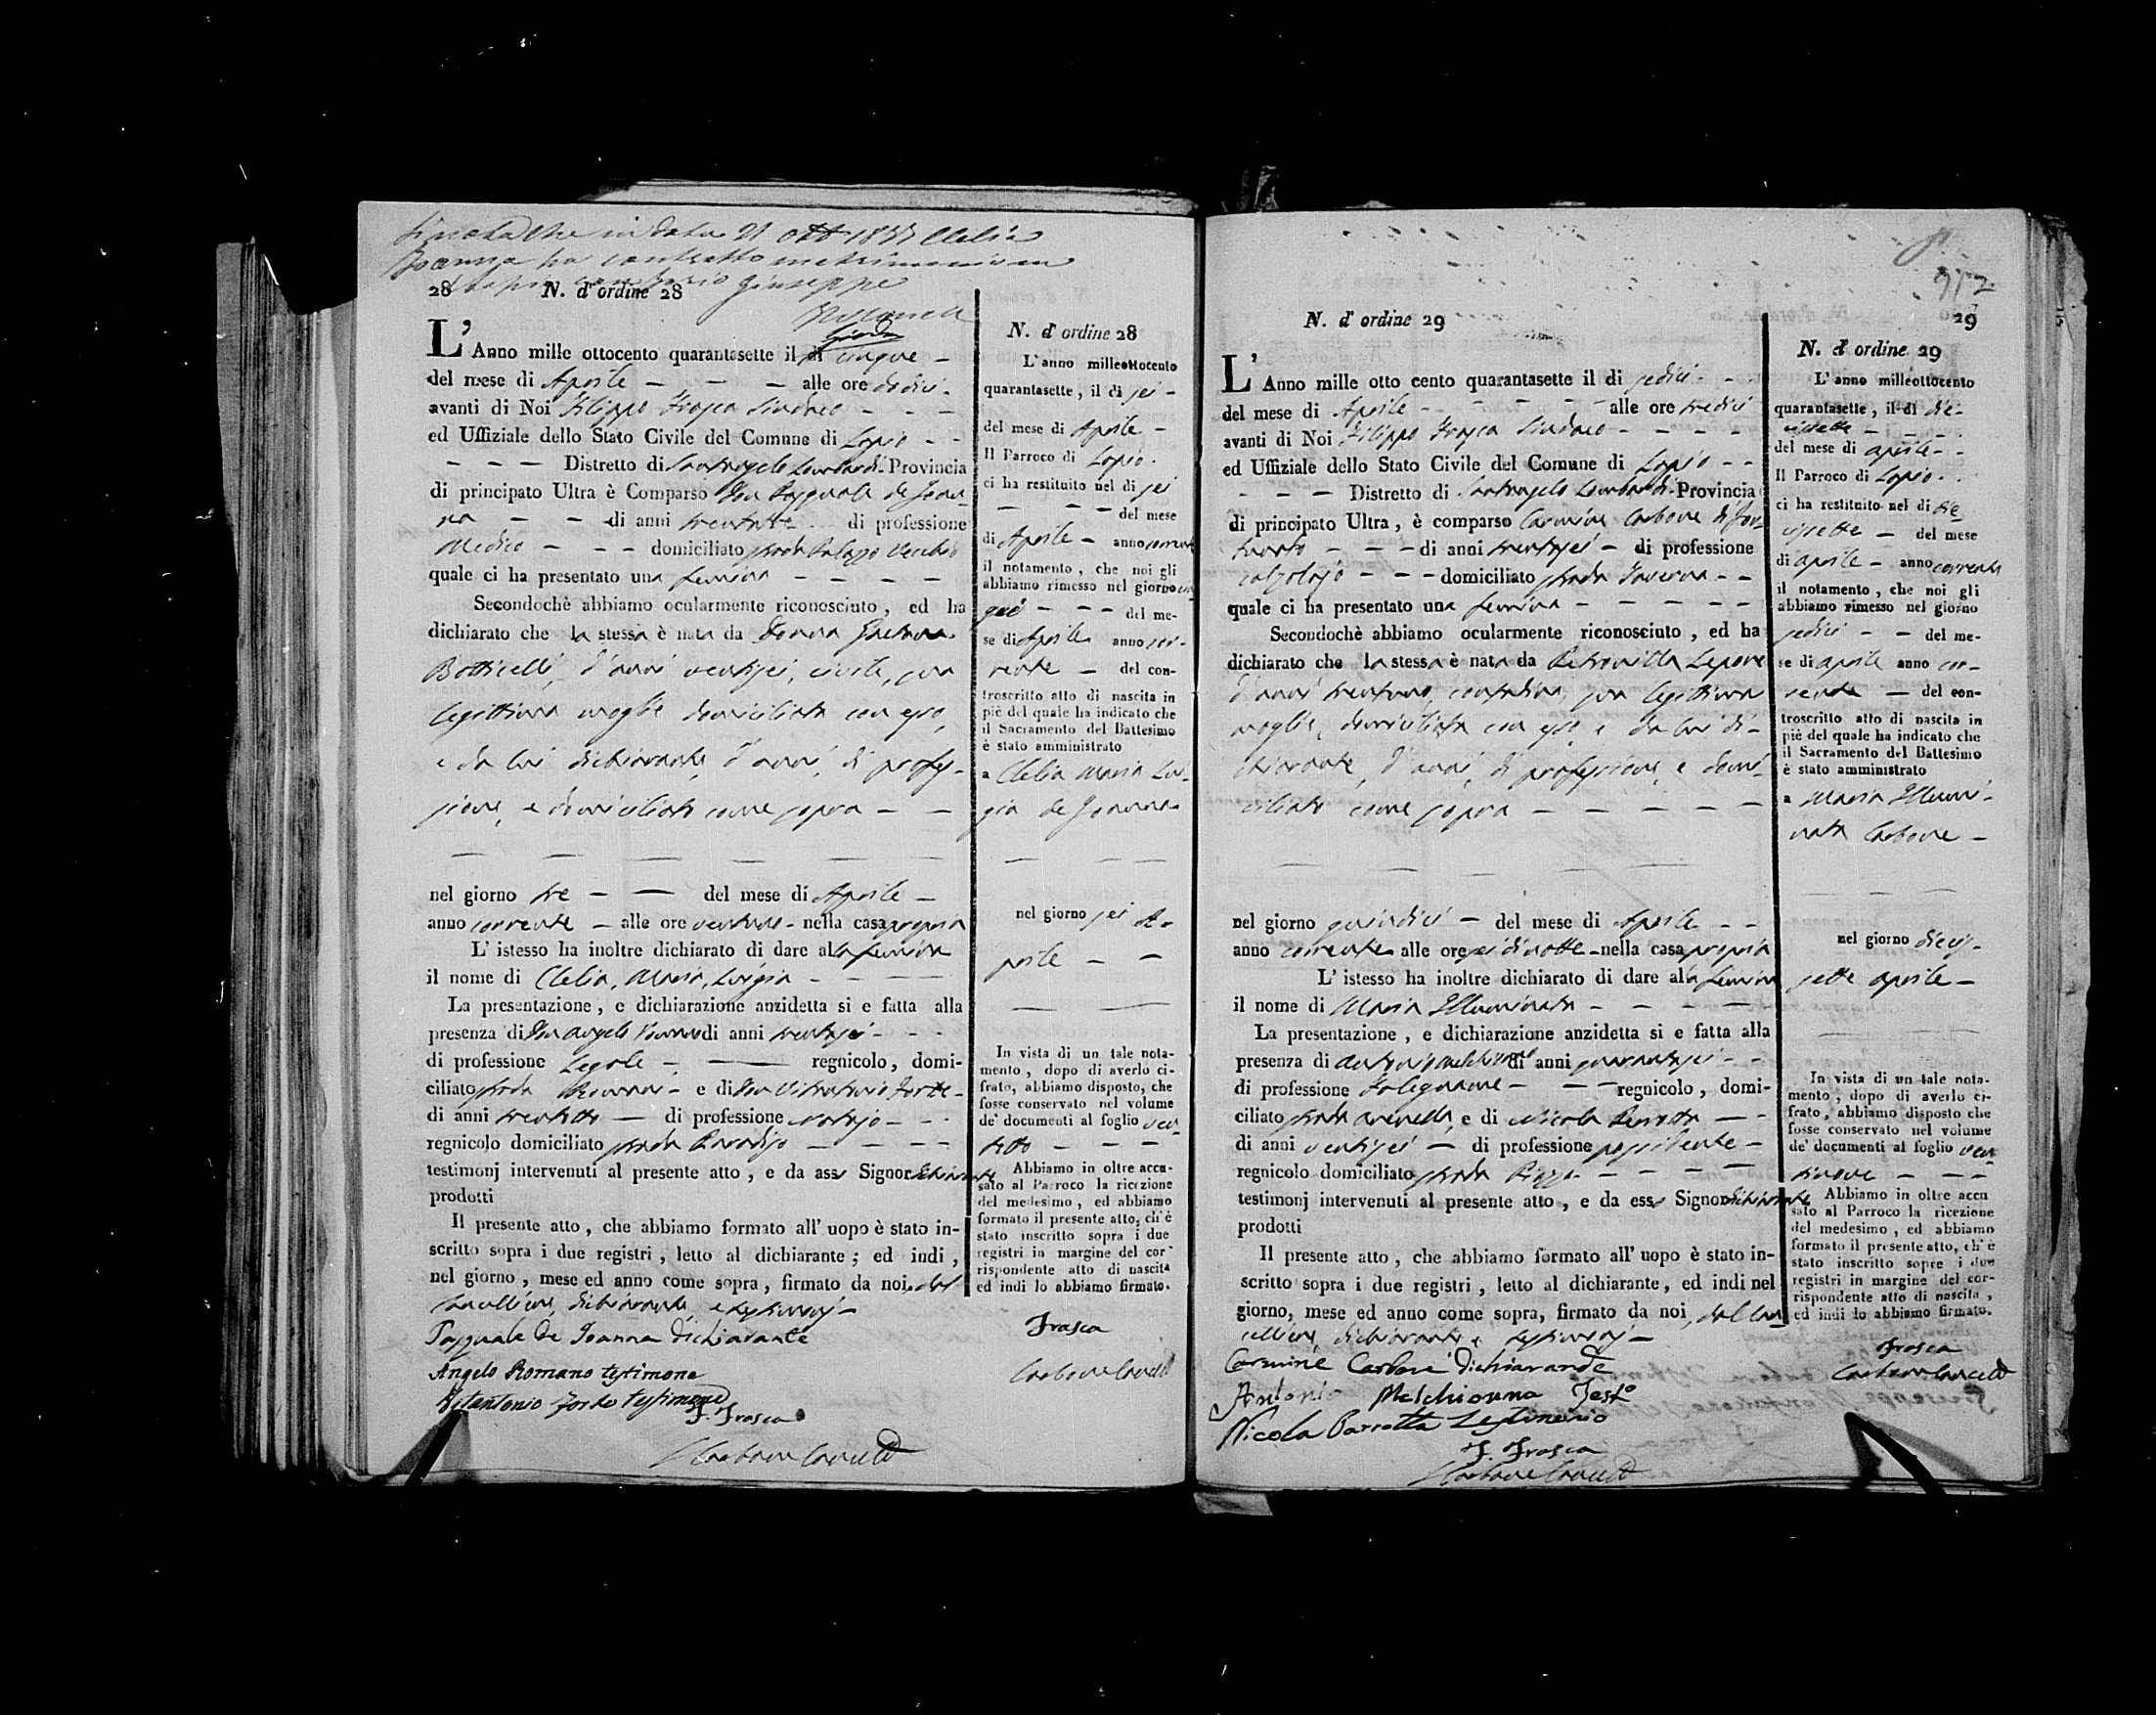 in data 21 ott 18 Clelia
Joanna ha contratto matrimonio
Giuseppe
28 N. d' ordine 28
L' Anno mille ottocento quarantasette il di cinque —
del mese di Aprile — — — alle ore dodici -
avanti di Noi Filippo Frasca Sindaco - - -
ed Uffiziale dello Stato Civile del Comune di Lapio - -
— — — Distretto di Santangelo Lombardi Provincia
di principato Ultra è Comparso Don Pasquale de Joan-
na — — di anni trentatre di professione
Medico — - - domiciliato strada Palazzo Vecchio
quale ci ha presentato una femina — — — —
Secondochè abbiamo ocularmente riconosciuto, ed ha
dichiarato che la stessa è nata da Donna Gaetana
Botticelli, d'anni ventisei, civile, sua
legittima moglie domiciliata con esso,
e da lui dichiarante, d'anni, di profes-
sione, e domiciliato come sopra — —
nel giorno tre — — del mese di Aprile —
anno corrente — alle ore - nella casa propria
L' istesso ha inoltre dichiarato di dare alla femina
il nome di Clelia, Maria, Luigia - - —
La presentazione, e dichiarazione anzidetta si e fatta alla
presenza di Don Angelo Romano di anni trentasei - - -
di professione Legale — — regnicolo, domi-
ciliato strada — e di Don Vitantonio Forte -
di anni trentotto — di professione notajo - - -
regnicolo domiciliato strada Paradiso — — — —
testimonj intervenuti al presente atto, e da esso Signor dichiarante
prodotti
Il presente atto, che abbiamo formato all' uopo è stato in-
scritto sopra i due registri, letto al dichiarante; ed indi,
nel giorno, mese ed anno come sopra, firmato da noi, dal
cancelliere, dichiarante, e testimonj —
Pasquale de Joanna dichiarante
Angelo Romano testimone
Vitantonio Forte testimone
F. Frasca
Carbone Canc
N. d' ordine 28
L' anno milleottocento
quarantasette, il di sei -
del mese di Aprile —
Il Parroco di Lapio.
ci ha restituito nel di sei
— — — del mese
di Aprile — anno corrente
il notamento, che noi gli
abbiamo rimesso nel giorno cin
que — — — del me-
se di Aprile anno cor-
rente — del con-
troscritto atto di nascita in
piè del quale ha indicato che
il Sacramento del Battesimo
è stato amministrato
a Clelia Maria Lui-
gia de Joanna
nel giorno sei A-
prile — —
In vista di un tale nota-
mento, dopo di averlo ci-
frato, abbiamo disposto, che
fosse conservato nel volume
de' documenti al foglio ven
totto — — —
Abbiamo in oltre accu-
sato al Parroco la ricezione
del medesimo, ed abbiamo
formato il presente atto, ch'è
stato inscritto sopra i due
registri in margine del cor-
rispondente atto di nascita
ed indi lo abbiamo firmato.
Frasca
Carbone Canc
912
N. d' ordine 29
29
L' Anno mille otto cento quarantasette il di sedici - -
del mese di Aprile - - - - alle ore tredici
avanti di Noi Filippo Frasca Sindaco - - - -
ed Uffiziale dello Stato Civile del Comune di Lapio - -
- — — Distretto di Santangelo Lombardi Provincia
di principato Ultra, è comparso Carmine Carbone di For-
tunato - - - di anni trentasei — di professione
calzolajo - - - domiciliato strada Taverna - -
quale ci ha presentato una femina — — — —
Secondochè abbiamo ocularmente riconosciuto, ed ha
dichiarato che la stessa è nata da Petronilla Lepore
d'anni trentuno, contadina, sua legittima
moglie, domiciliata con esso, e da lui di-
chiarante, d'anni, di professione, e domi-
ciliato come sopra — — — — —
nel giorno quindici — del mese di Aprile - -
anno corrente alle ore sei di notte - nella casa propria
L' istesso ha inoltre dichiarato di dare alla femina
il nome di Maria Illuminata - - - — —
La presentazione, e dichiarazione anzidetta si e fatta alla
presenza di Antonio Melchionna di anni quarantasei - -
di professione Falegname - - — regnicolo, domi-
ciliato strada, e di Nicola Parrotta — -
di anni ventisei — di professione possidente —
regnicolo domiciliato strada Piazza - — — — —
testimonj intervenuti al presente atto, e da esso Signor dichiarante
prodotti
Il presente atto, che abbiamo formato all' uopo è stato in-
scritto sopra i due registri, letto al dichiarante, ed indi nel
giorno, mese ed anno come sopra, firmato da noi, dal can
celliere, dichiarante, e testimonj —
Carmine Carbone dichiarande
Antonio Melchionna Testo
Nicola Parrotta Testimonio
F. Frasca
Carbone Canc
N. d' ordine 29
L' anno milleottocento
quarantasette, il di die-
cisette — — — -
del mese di aprile - -
Il Parroco di Lapio - .
ci ha restituito nel di die
cisette — del mese
di aprile — anno corrente
il notamento, che noi gli
abbiamo rimesso nel giorno
sedici - — del me-
se di aprile anno cor-
rente — del con-
troscritto atto di nascita in
piè del quale ha indicato che
il Sacramento del Battesimo
è stato amministrato
a Maria Illumi-
nata Carbone —
nel giorno dicis-
sette aprile —
In vista di un tale nota-
mento, dopo di averlo ci-
frato, abbiamo disposto che
fosse conservato nel volume
de' documenti al foglio ven
tinove — — —
Abbiamo in oltre accu
sato al Parroco la ricezione
del medesimo, ed abbiamo
formato il presente atto, ch'è
stato inscritto sopra i due
registri in margine del cor-
rispondente atto di nascita,
ed indi lo abbiamo firmato.
Frasca
Carbone Canc